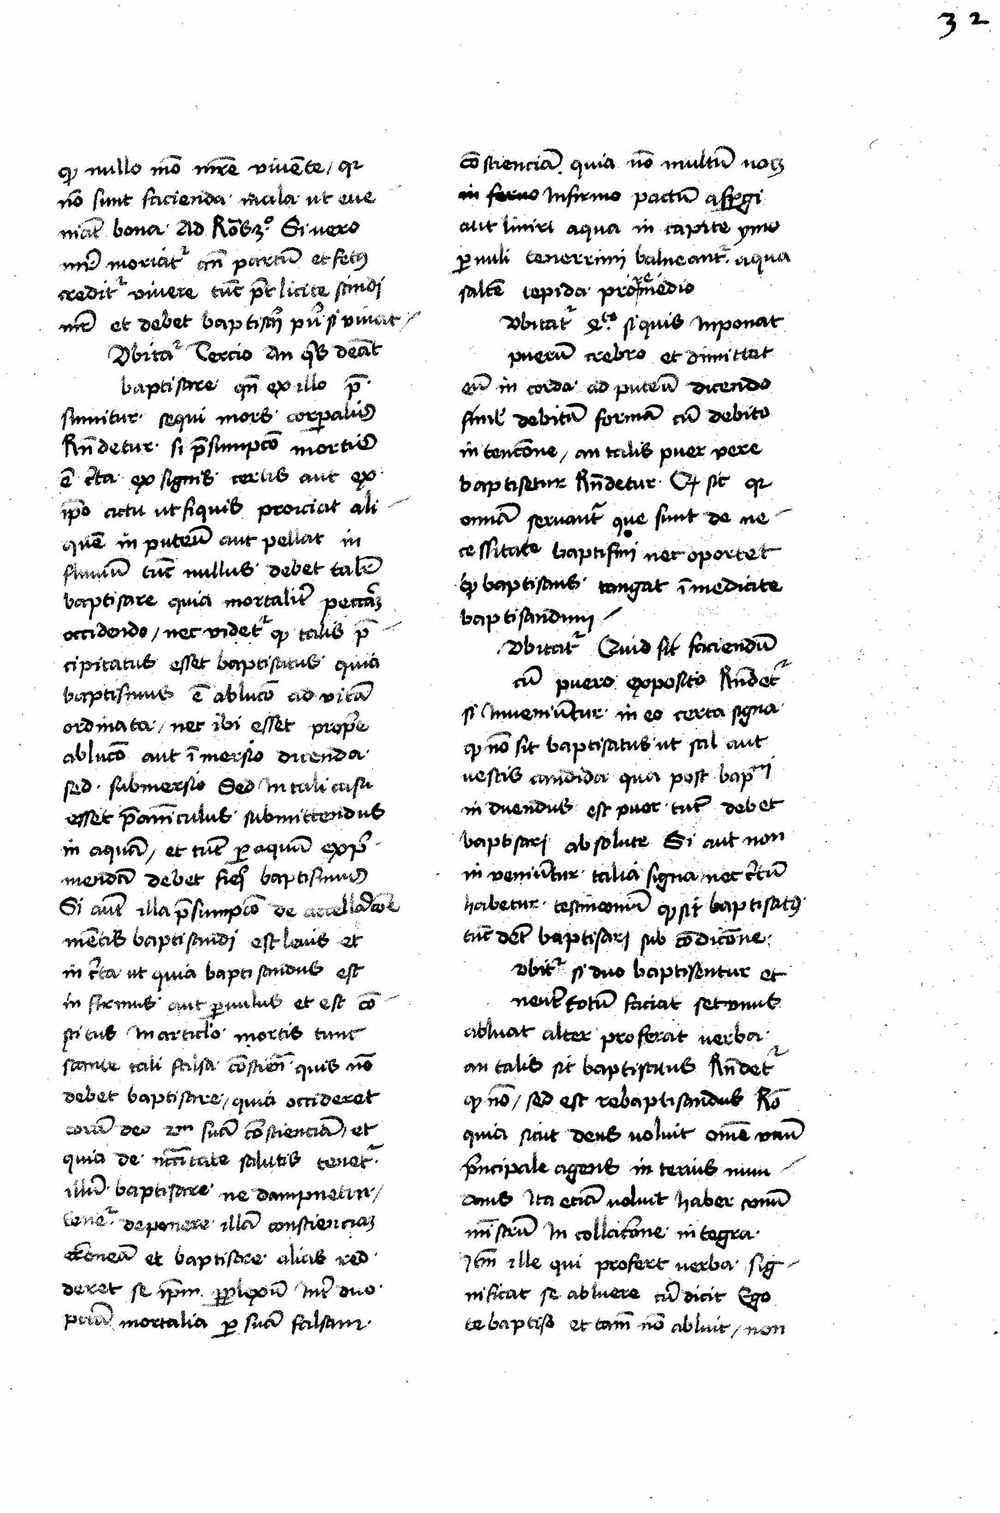 32
nullo mō mr̄e vivēte / qr
nō sunt facienda mala ut eue
niāt bona Ad Si vero
moriat᷑ an̄ partū et fet9
credit᷑ vivere tūc pt̄ licite scindi
et debet si vivat /
Vbitat᷑ Tercio An q̄s
baptisare qn̄ ex illo
sumitur sequi mors corpalis
Rn̄detur si p̄sumpcō mortis
ē c̄ta ex signis certis aut ex
ip̄o actu ut siquis proiciat ali
quē in puteū aut pellat in
flumū tūc nullus debet talē
baptisare quia mortalit̄
occidendo / nec videt᷑ qp talis p̄
cipitatus esset baptisatus quia
baptismus ē ablucō ad vitā
ordinata / nec ibi esset prop̄e
ablucō aut īmersio dicenda
sed submersio Sed in tali casu
esset submittendus
in aquā / et tūc p aquā
debet fieri baptismus
Si aūt illa p̄sumpcō de
mētis baptisandi est levis et
in c̄ta ut quia baptisandus est
infirmus aut pvulus et est cō
stitus in articl̄o mortis tunc
stante tali falsa quis nō
debet baptisare / quia occideret
corā deo suā cōscienciā / et
quia de salutis tenet᷑
illū baptisare ne dampnetur /
tenet᷑ deponere illā conscienciam
erroneā et baptisare alias red
deret se ip̄m pplexū int̄ duo
mortalia p suā falsam
cōscienciā quia nō multū
Infirmo pactū aspgi
aut liniri aqua in capite ymo
pvuli tenerrimi balneant᷑ aqua
saltē tepida
Vbitat᷑ siquis inponat
puerū crebro et dimittat
eū in corda ad puteū dicendo
simł debitā formā cū debito
intencōne / an talis puer vere
baptisetur Rn̄detur sic qr
omnia servant᷑ que sunt de ne
cessitate baptismi nec oportet
qp baptisans tangat īmediate
baptisandum /
Vbitat᷑ Quid sit faciendū
cū puero exposito Rn̄det᷑
si Inveniūtur in eo certa signa
qp nō sit baptisatus ut sal aut
vestis candida qua post
induendus est puer tūc debet
baptisari absolute Si aut non
inveniūtur talia signa nec c̄tū
habetur testimoniū qp sit baptisat9
tūc baptisari sub cōdicōne
Vbit᷑ si duo baptisentur et
neut̄ totū faciat set unus
abluat alter proferat verba
an talis sit baptisatus Rn̄det᷑
qp nō / sed est rebaptisandus Rō
quia sicut deus voluit om̄e unū
p̄ncipale agens
Ita etiā voluit haber unū
In collatōne integra
Itm̄ ille qui profert verba sig
nificat se abluere cū dicit Ego
te baptiso et tam̄ nō abluit / non